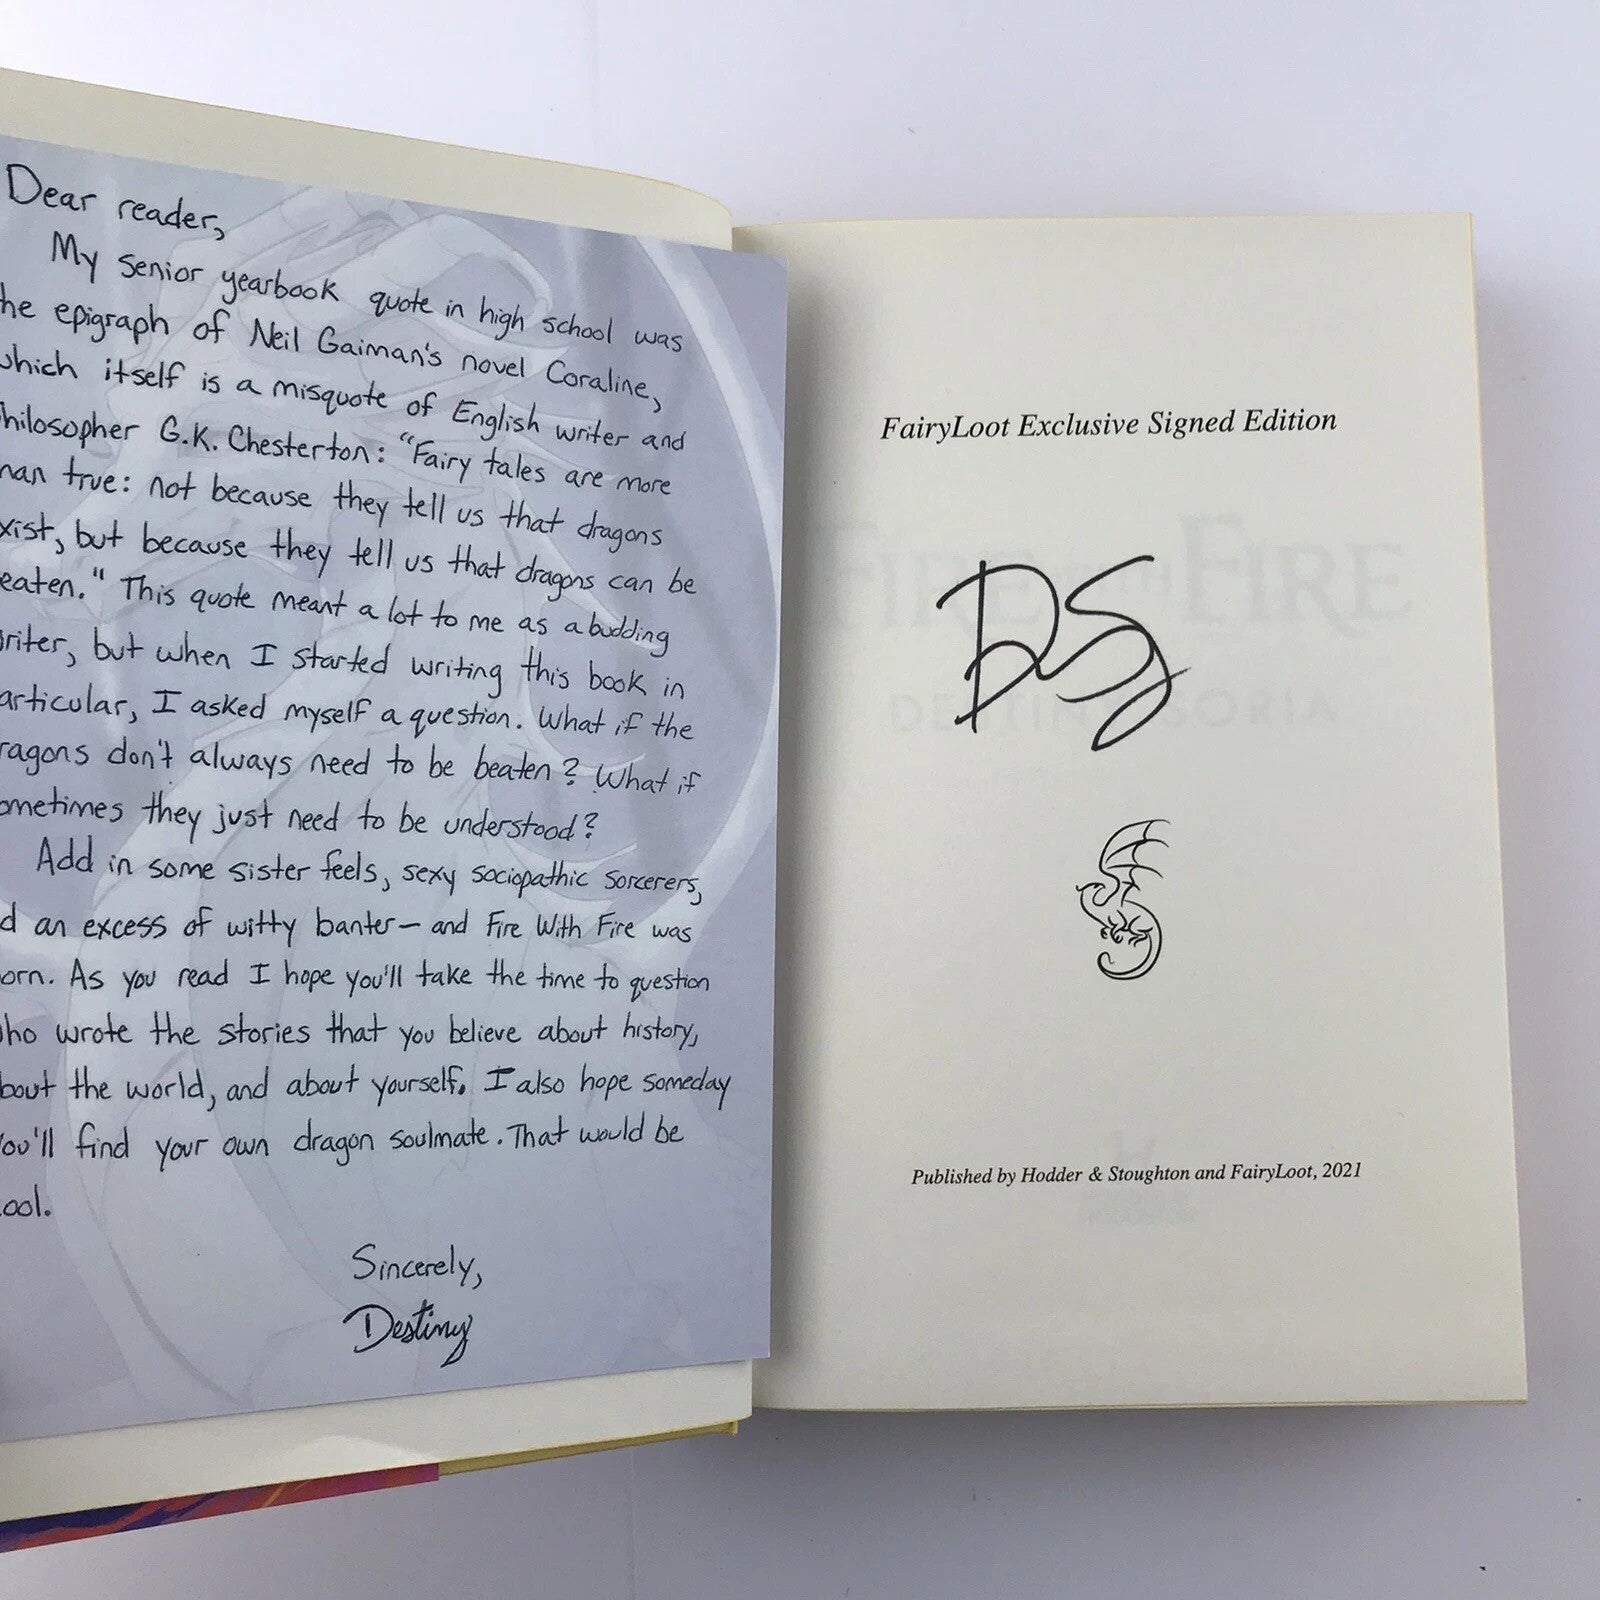 Dear reader,
My senior yearbook quote in high school was
he epigraph of Neil Gaiman's novel Coraline,
which itself is a misquote of English writer and
hilosopher G.K. Chesterton: "Fairy tales are more
han true: not because they tell us that dragons
xist, but because they tell us that dragons can be
eaten." This quote meant a lot to me as a budding
riter, but when I started writing this book in
articular, I asked myself a question. What if the
ragons don't always need to be beaten? What if
ometimes they just need to be understood?
Add in some sister feels, sexy sociopathic sorcerers,
d an excess of witty banter— and Fire With Fire was
orn. As you read I hope you'll take the time to question
ho wrote the stories that you believe about history,
bout the world, and about yourself. I also hope someday
ou'll find your own dragon soulmate. That would be
ool.
Sincerely,
Destiny
FairyLoot Exclusive Signed Edition
DS
Published by Hodder & Stoughton and FairyLoot, 2021